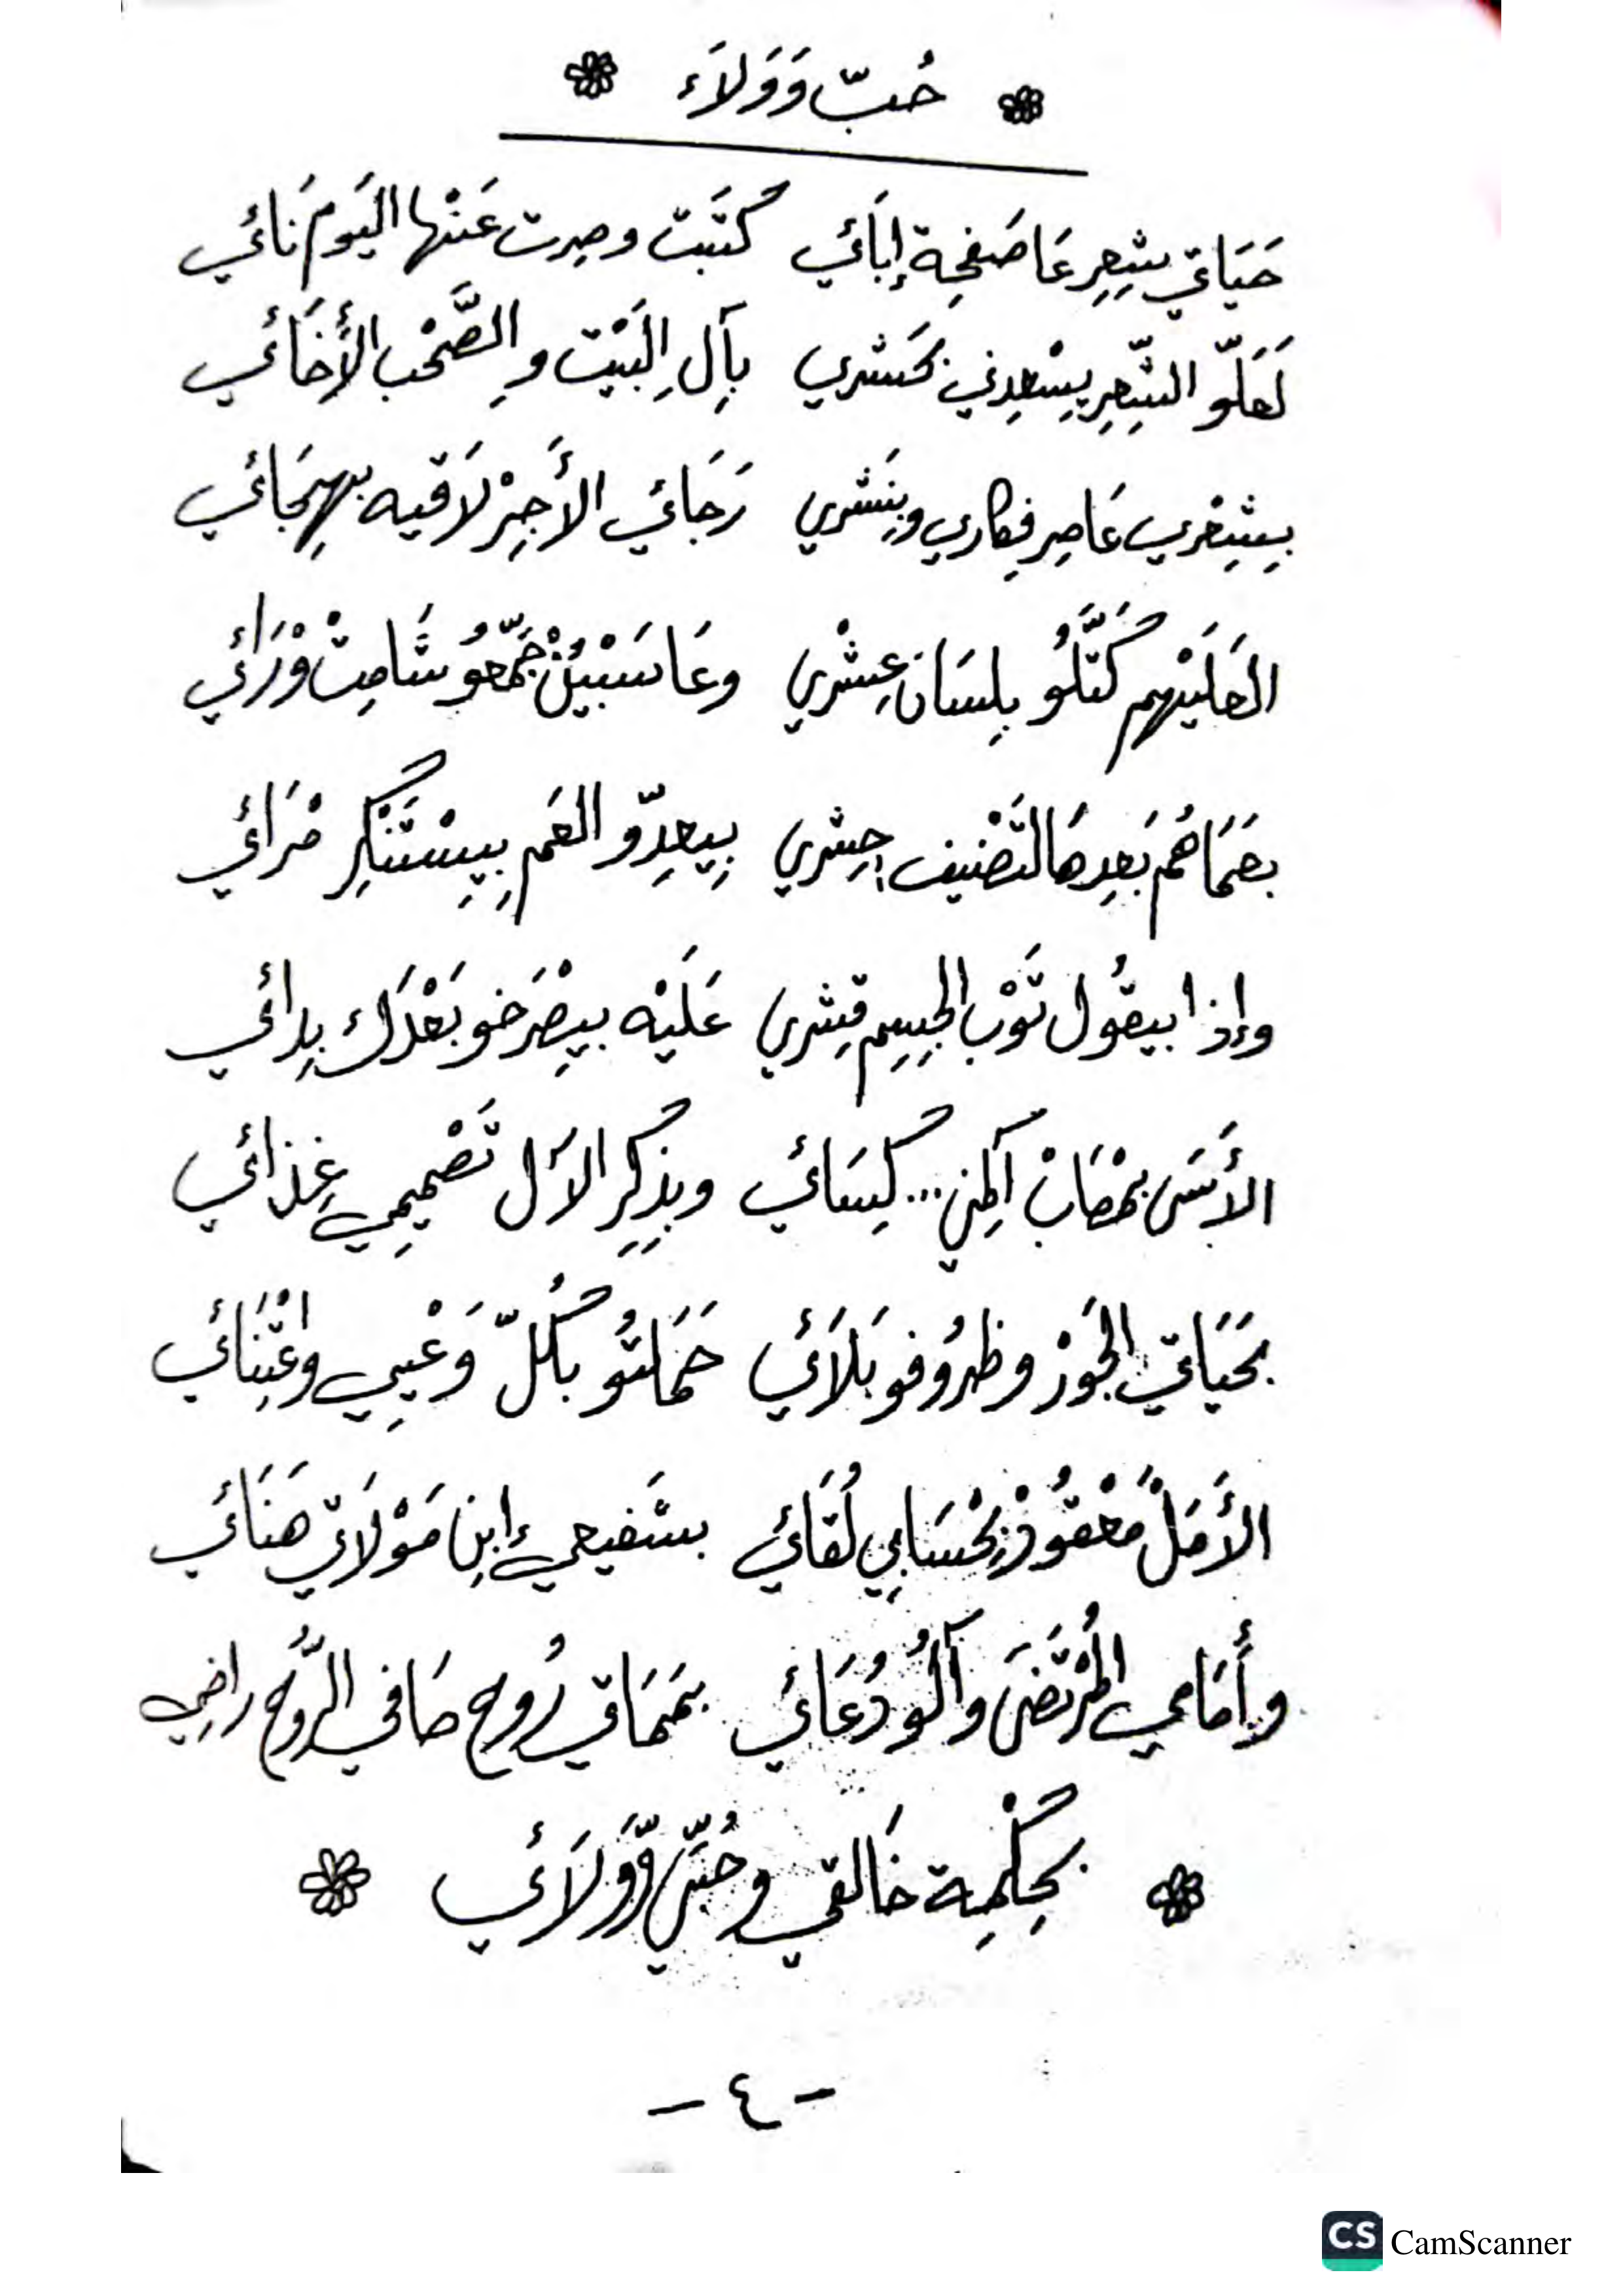 حُبّ وَوَلاَء
حَيَاتي بشِعِر عَا صَفحِة إبَائي كتَبت وصِرت عَنْها اليَوم نَائي
لَعَلّو الشّعِر يِسْعِدني بحَشري بِآل البَيْت والصَّحْب الأَخَائي
بِشِعْري عَاصِر فِكاري وبِنَشري رَجَائي الأَجِرْ لاَقيه بهِجَائي
العَلَيْهم كَتَّلُو بِلسَان عِشْري وعَا سَبْيُنْ جَمّعُو شَامِتْ وْرَائي
بعَمَاهُم بَعِد هَالتَصْنيف اجِشري بِيعِدّو العَم بِيِسْتَنْكِر مْرَائي
وإذا بيقُول تَوْب الجِسِم قِشري عَلَيْه بيِصْرَخو بَعْدَك بِدائي
الأَسَى بمْصَابْ آلمني... كِسَائي وبذِكِر الآل تَصْميمِي غِذائي
بحَيَاتي الجَوْر وظرُوفو بَلاَئي حَمَلتُو بكُلّ وَعْيِي واعْتِنَائي
الأَمَلْ مَعْقُودْ بحْسَابِي لُقَائي بشَفيعي إبِن مَوْلاَتي هَنَائي
وأمَامي المُرْتَضَى وآلُو دُعَائي بمَمَاتي رُوح صَافي الرُّوح راضِي
بحِكْمِة خَالقي وحُبّي وَّوَلاَئي
- ٤ -
CS CamScanner